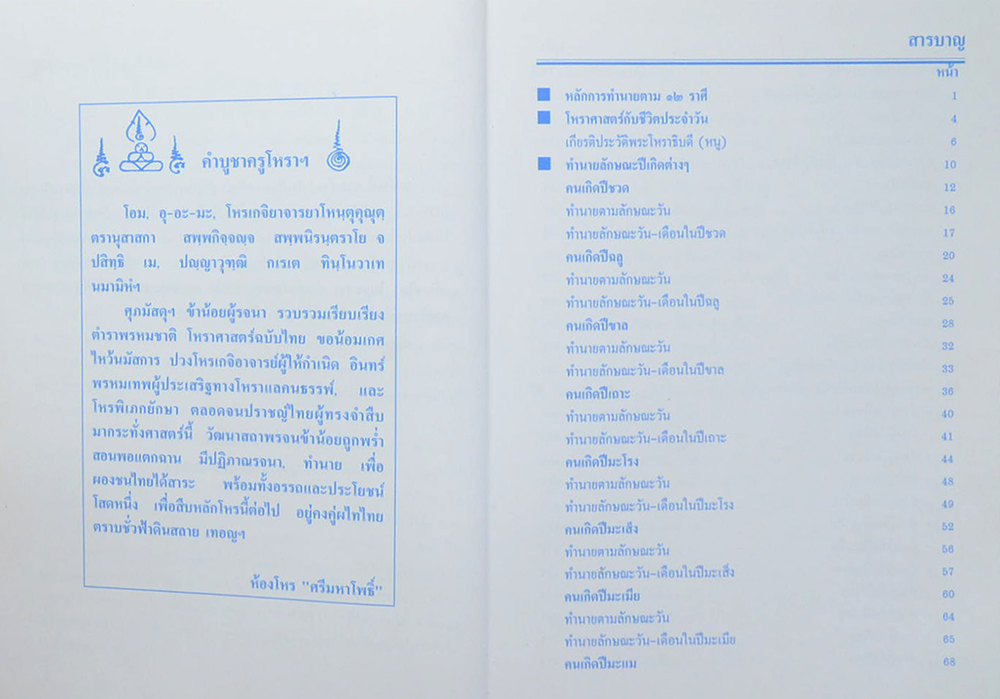 คำบูชาครูโหราฯ
โอม, อุ-อะ-มะ, โหรเกจิยาจารยาโหนฺตุคุณุตฺ
ตรานุสาสกา สพฺพกิจฺจญฺจ สพฺพนิรนฺตราโย จ
ปสิทฺธิ เม, ปญฺญาวุฑฺฒิ กเรเต ทินฺโนวาเท
นมามิหํฯ
ศุภมัสดุฯ ข้าน้อยผู้รจนา รวบรวมเรียบเรียง
ตำราพรหมชาติ โหราศาสตร์ฉบับไทย ขอน้อมเกศ
ไหว้นมัสการ ปวงโหรเกจิอาจารย์ผู้ให้กำเนิด อินทร์
พรหมเทพผู้ประเสริฐทางโหราแลคนธรรพ์, และ
โหรพิเภกยักษา ตลอดจนปราชญ์ไทยผู้ทรงจำสืบ
มากระทั่งศาสตร์นี้ วัฒนาสถาพรจนข้าน้อยถูกพร่ำ
สอนพอแตกฉาน มีปฏิภาณรจนา, ทำนาย เพื่อ
ผองชนไทยได้สาระ พร้อมทั้งอรรถและประโยชน์
โสดหนึ่ง เพื่อสืบหลักโหรนี้ต่อไป อยู่คงคู่ผไทไทย
ตราบชั่วฟ้าดินสลาย เทอญฯ
ห้องโหร "ศรีมหาโพธิ์"
สารบาญ
หน้า
หลักการทำนายตาม ๑๒ ราศี 1
โหราศาสตร์กับชีวิตประจำวัน 4
เกียรติประวัติพระโหราธิบดี (หนู) 6
ทำนายลักษณะปีเกิดต่างๆ 10
คนเกิดปีชวด 12
ทำนายตามลักษณะวัน 16
ทำนายลักษณะวัน-เดือนในปีชวด 17
คนเกิดปีฉลู 20
ทำนายตามลักษณะวัน 24
ทำนายลักษณะวัน-เดือนในปีฉลู 25
คนเกิดปีขาล 28
ทำนายตามลักษณะวัน 32
ทำนายลักษณะวัน-เดือนในปีขาล 33
คนเกิดปีเถาะ 36
ทำนายตามลักษณะวัน 40
ทำนายลักษณะวัน-เดือนในปีเถาะ 41
คนเกิดปีมะโรง 44
ทำนายตามลักษณะวัน 48
ทำนายลักษณะวัน-เดือนในปีมะโรง 49
คนเกิดปีมะเส็ง 52
ทำนายตามลักษณะวัน 56
ทำนายลักษณะวัน-เดือนในปีมะเส็ง 57
คนเกิดปีมะเมีย 60
ทำนายตามลักษณะวัน 64
ทำนายลักษณะวัน-เดือนในปีมะเมีย 65
คนเกิดปีมะแม 68